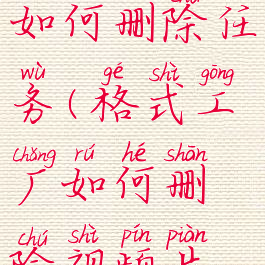 如何删除任
wù gé shì gōng
务(格式工
chǎng rú hé shān
厂如何删
chú shì pín piàn
除视频片